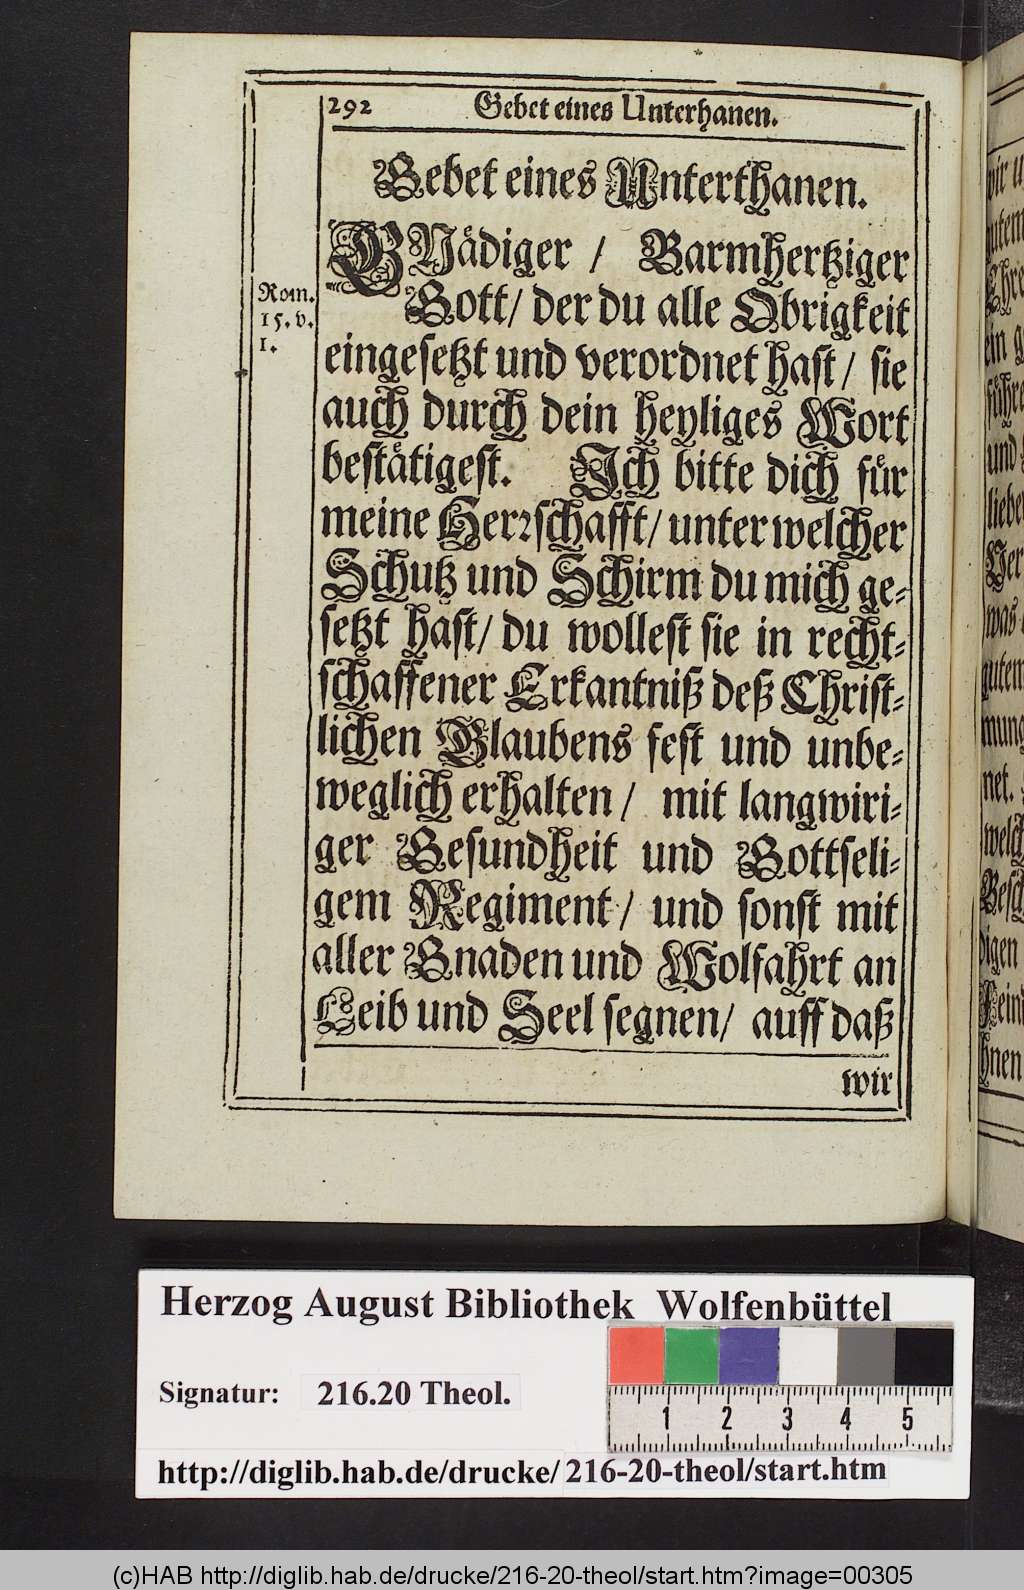 292 Gebet eines Unterhanen.
Gebet eines Unterthanen.
GNädiger / Barmhertziger
Gott/ der du alle Obrigkeit
Rom.
15. v.
1.
eingesetzt und verordnet hast/ sie
auch durch dein heyliges Wort
bestätigest. Ich bitte dich für
meine Herrschafft/ unter welcher
Schutz und Schirm du mich ge-
setzt hast/ du wollest sie in recht-
schaffener Erkantniß deß Christ-
lichen Glaubens fest und unbe-
weglich erhalten/ mit langwiri-
ger Gesundheit und Gottseli-
gem Regiment/ und sonst mit
aller Gnaden und Wolfahrt an
Leib und Seel segnen/ auff daß
wir
Herzog August Bibliothek Wolfenbüttel
Signatur: 216.20 Theol.
1 2 3 4 5
http://diglib.hab.de/drucke/216-20-theol/start.htm
(c)HAB http://diglib.hab.de/drucke/216-20-theol/start.htm?image=00305